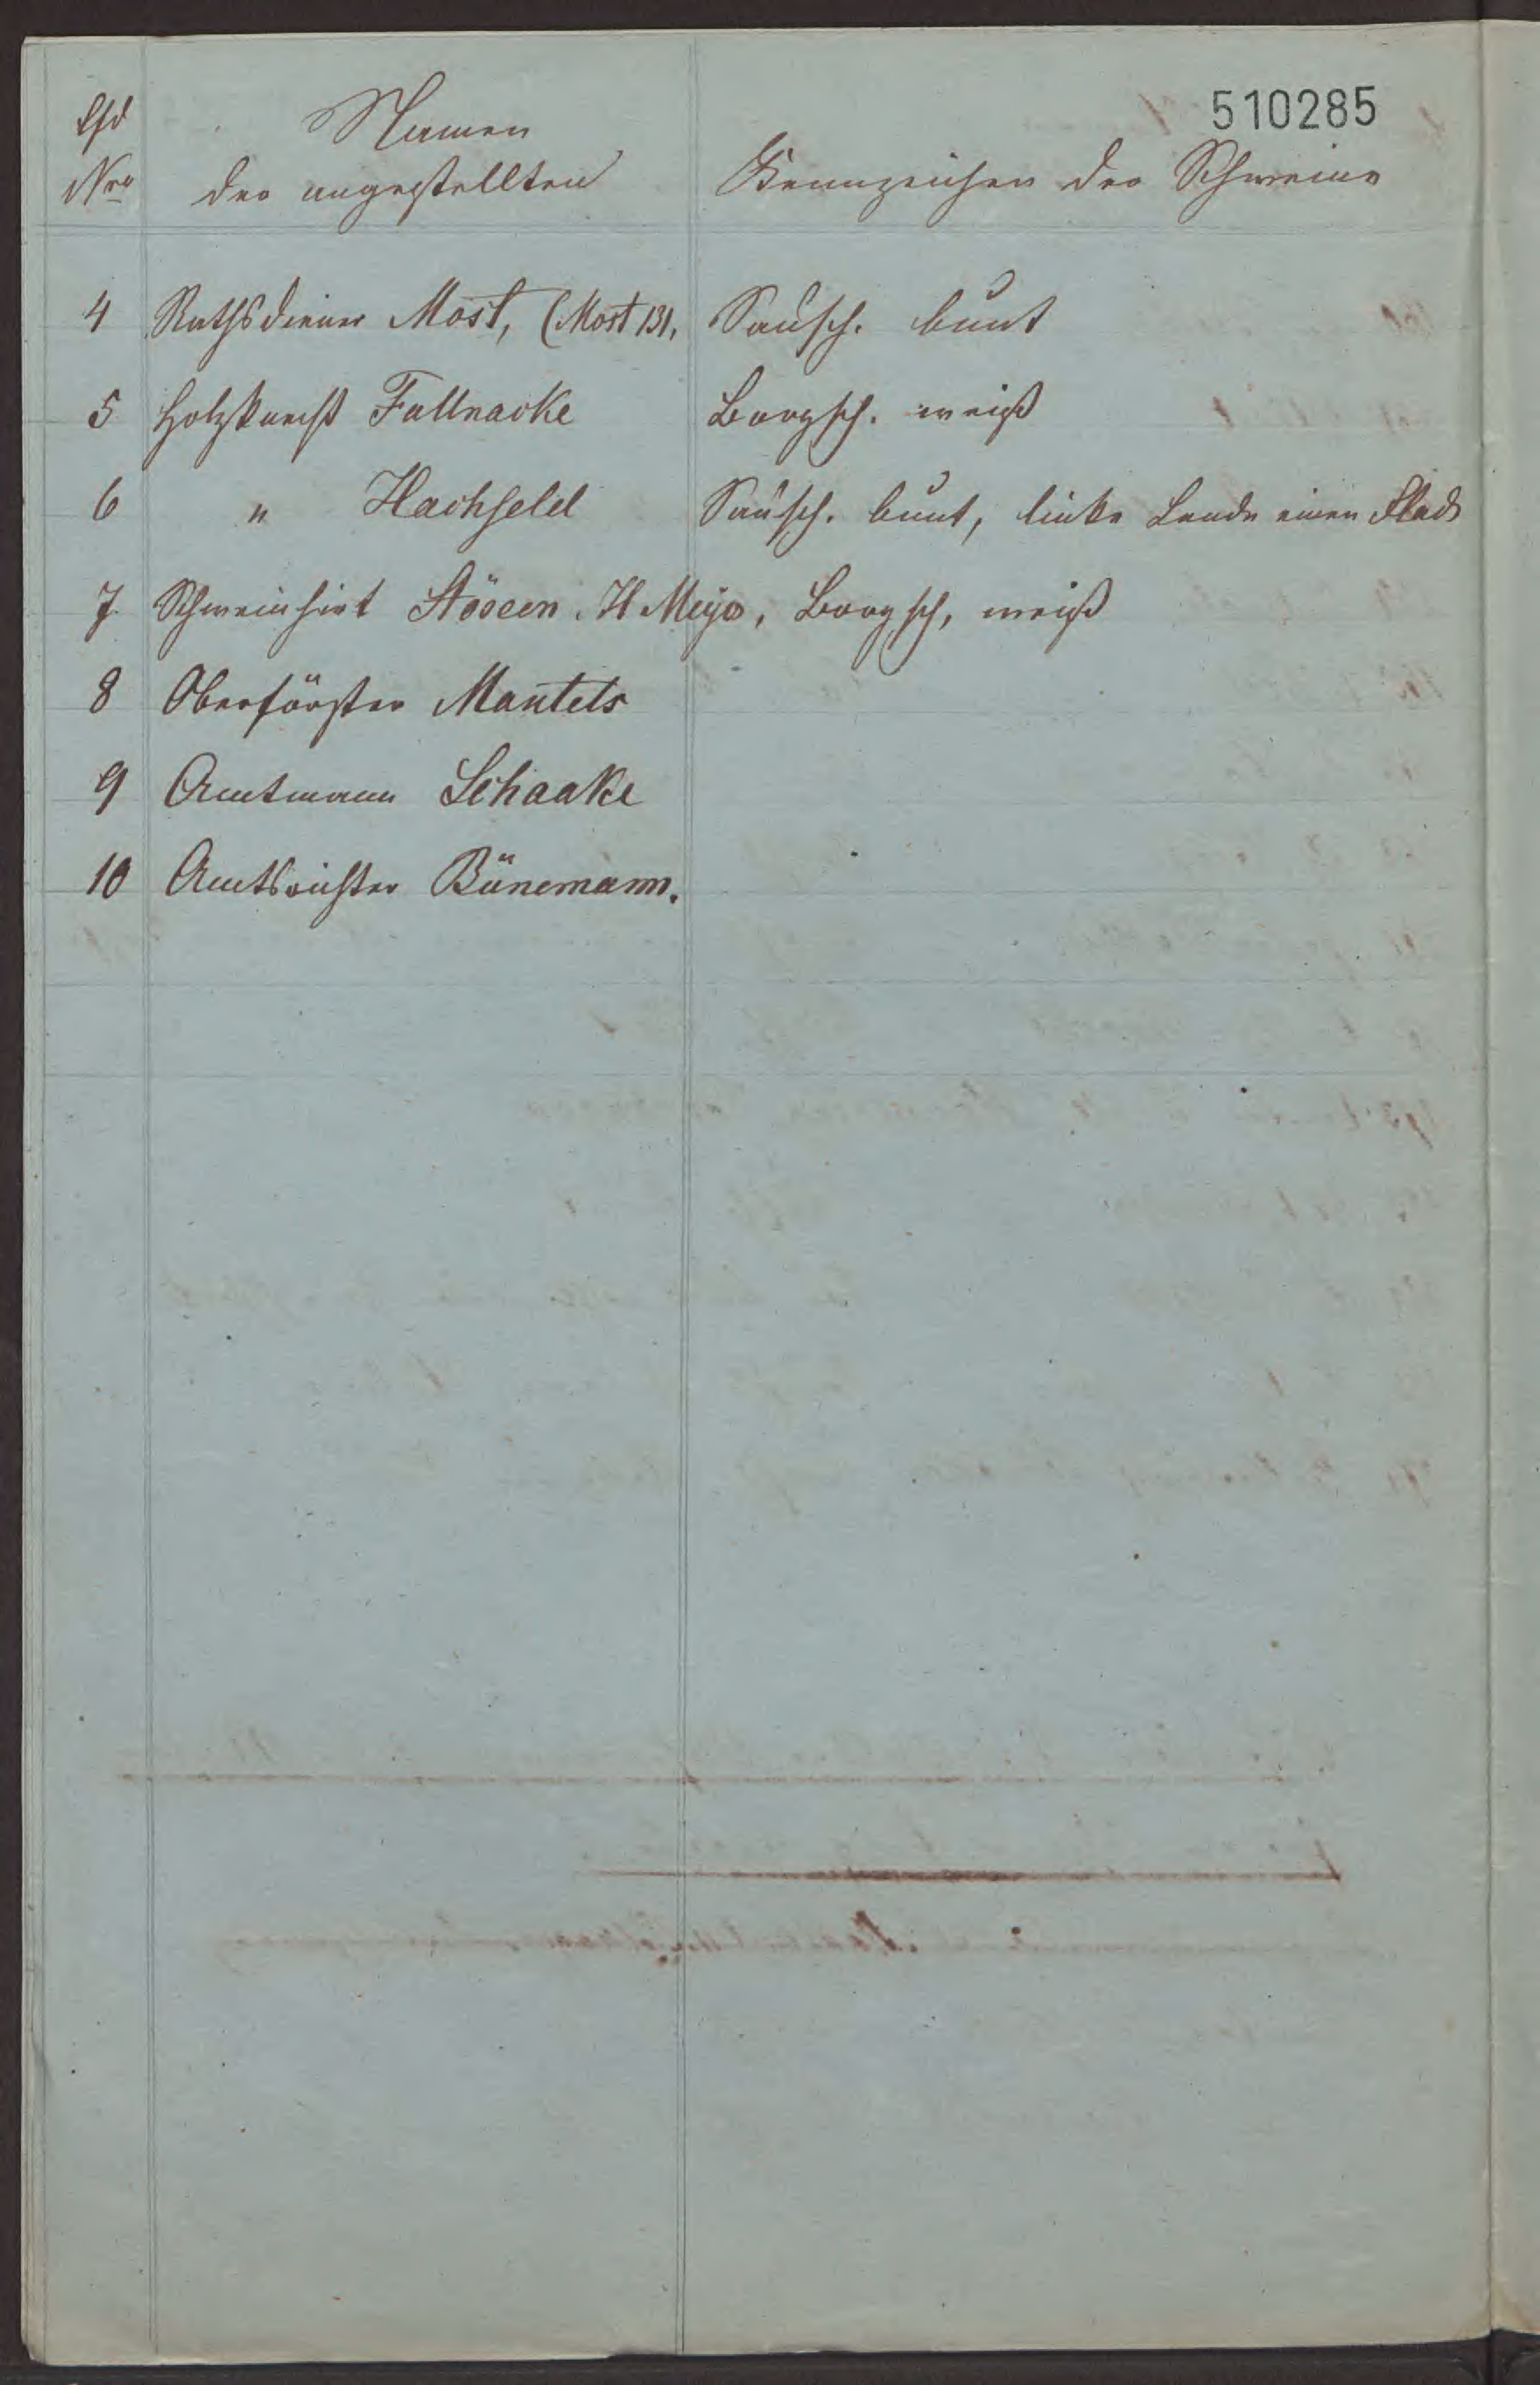 510285
Lfd Namen
Nro der angestellten Kennzeichen der Schweine
4 Rathsdiener Most, (Most 131, Sausch. bunt
5 Holzknecht Fallnacke Borgsch. weiß
6 " Hachfeld Sausch. bunt, linke Lende einen Fleck
7. Schweinhirt H Meyer, Borgsch, weiß
8 Oberförster Mantels
9 Amtmann Schaake
10 Amtsrichter Bünemann.